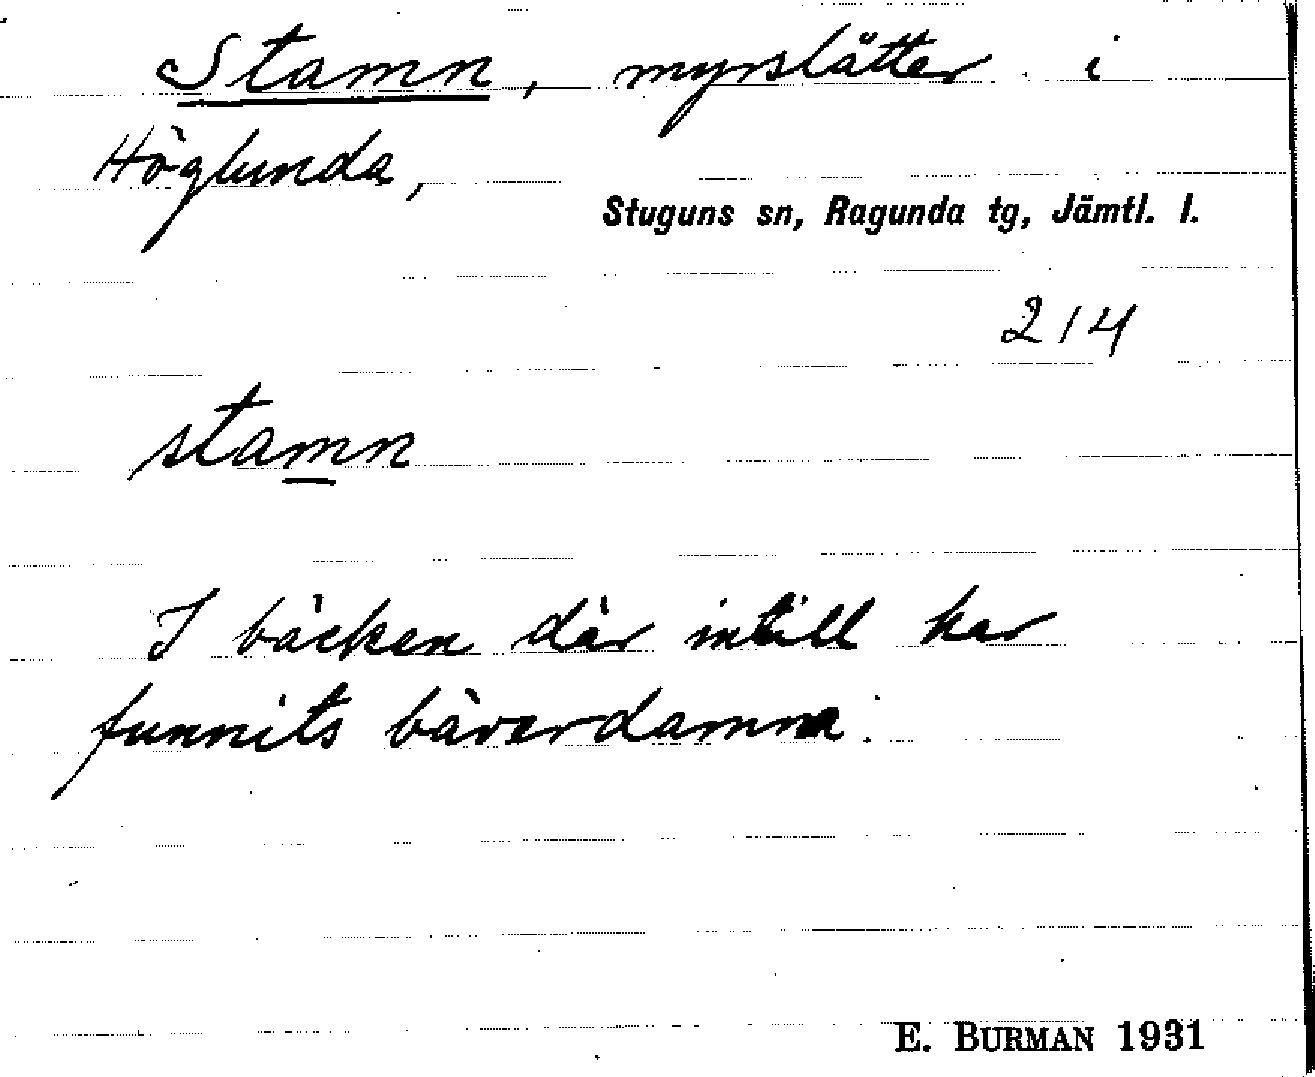 Stamn, myrslätter i
Höglunda,
Stuguns sn, Ragunda tg, Jämtl. l.
214
stamn
I bäcken där intill har
funnits bäverdamm.
E. BURMAN 1931